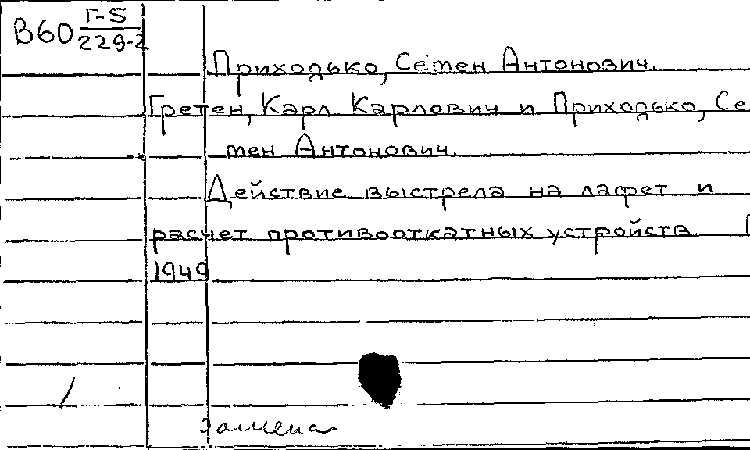 В60 Г-5
229-2
Приходько, Семен Антонович.
Гретен, Карл Карлович и Приходько, Се
мен Антонович.
Действие выстрела на лафет и
расчет противооткатных устройств
1949
/
замена